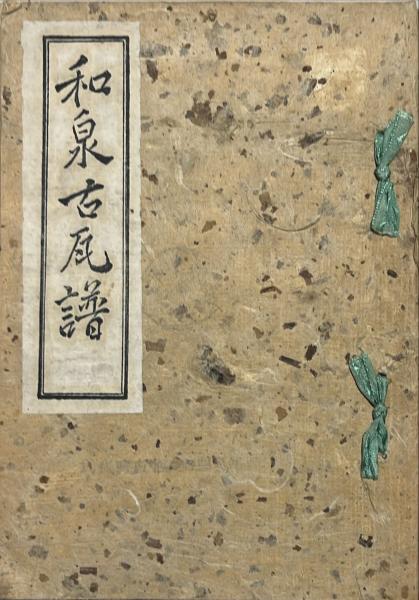 和泉古瓦譜